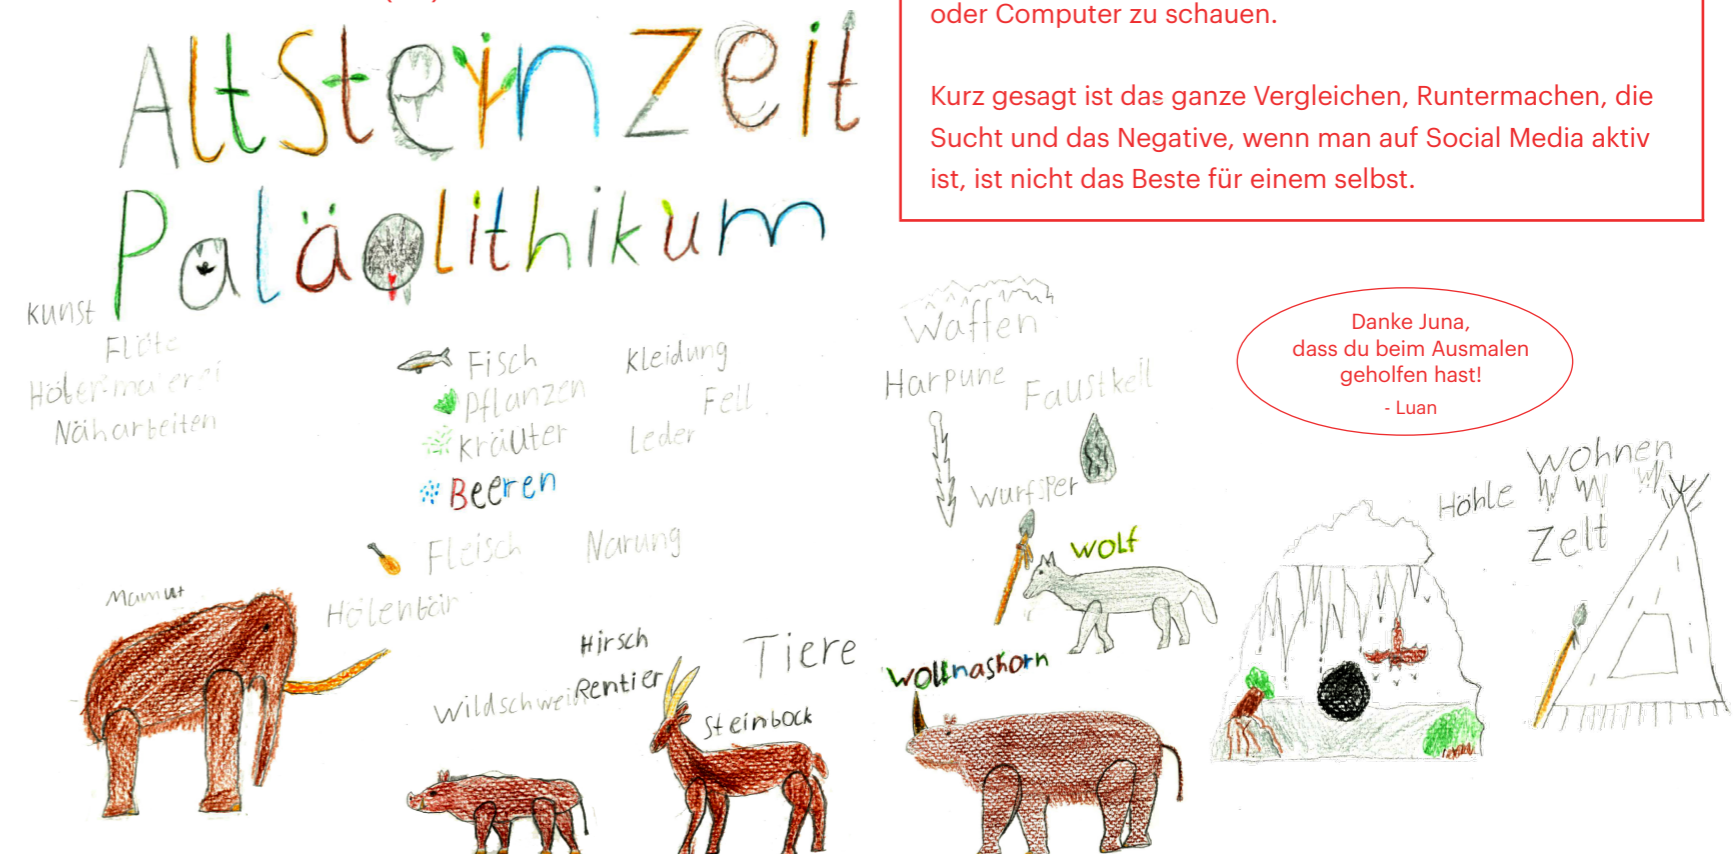 AltSteinzeit
Paläolithikum
oder Computer zu schauen.
Kurz gesagt ist das ganze Vergleichen, Runtermachen, die
Sucht und das Negative, wenn man auf Social Media aktiv
ist, ist nicht das Beste für einem selbst.
Kunst
Flöte
Näharbeiten
Fisch
Pflanzen
Kräuter
Beeren
Fleisch
Narung
Kleidung
Fell
Leder
Waffen
Harpune
Faustkeil
Wurfsper
Danke Juna,
dass du beim Ausmalen
geholfen hast!
- Luan
Wohnen
Höhle
Zelt
Mamut
Hölenbär
Hirsch
Rentier
Wildschwein
Steinbock
Tiere
Wolf
Wollnashorn